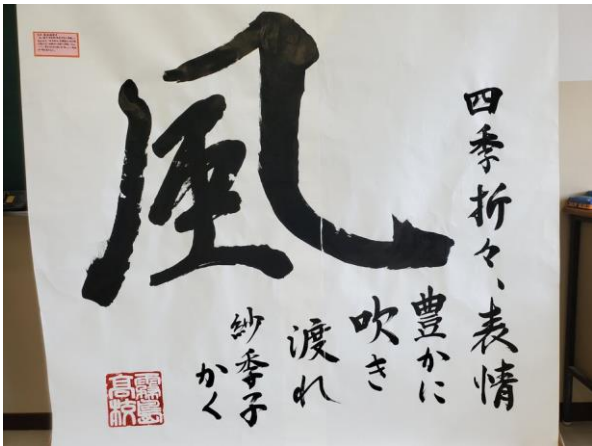 風
四季折々、表情
豊かに
吹き
渡れ
紗季子
かく
霧島
高校